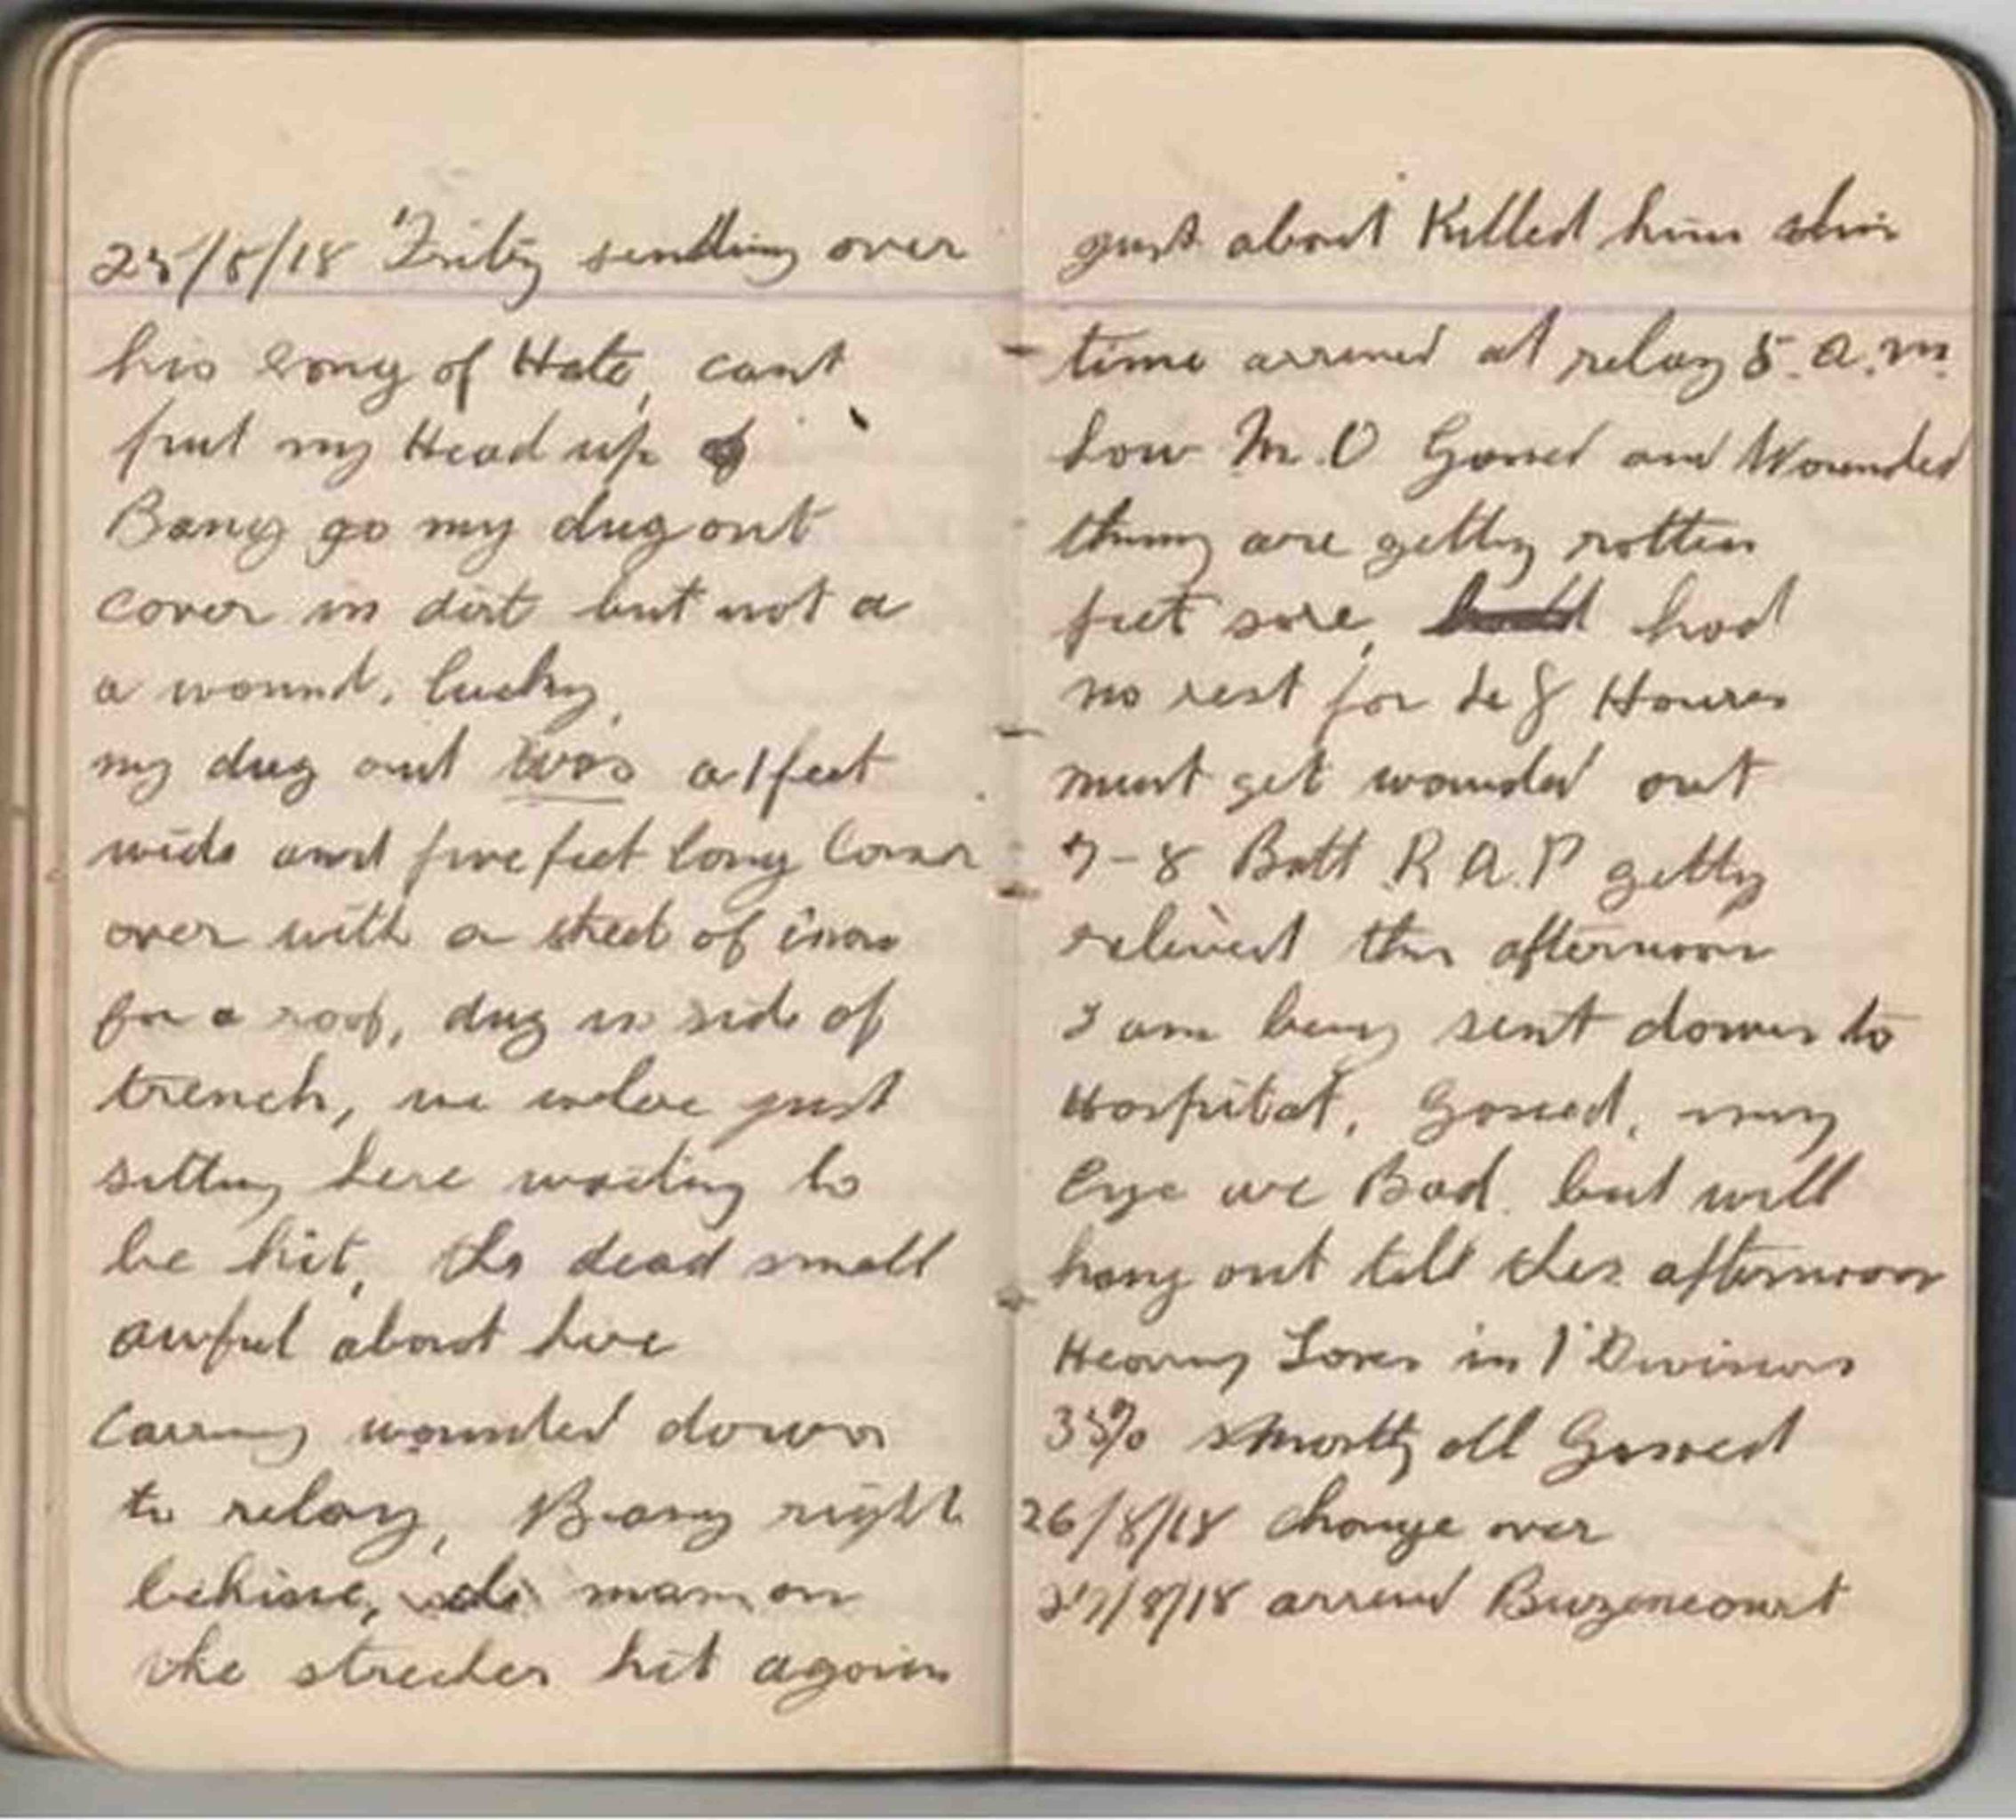 25/8/18 Fritz sending over
his song of Hate, cant
put my Head up
Bang go my dug out
cover in dirt but not a
a wound, lucky,
my dug out was a 1 feet
wide and five feet long Cover
over with a sheet of iron
for a roof, dug in side of
trench, we just
sitting here waiting to
be hit, the dead smell
awful about here
Carring wounded down
to relay, Bang right
behine, man on
the strecher hit again
just about Killed him this
time arrived at relay 5. a.m.
Our M.O Gassed and Wounded
thing are getting rotten
feet sore, had
no rest for 48 Houres
must get wounded out
7-8 Batt R.A.P getting
relived this afternoon
I am being sent down to
Hospital, Gassed, my
Eye are Bad. but will
hang out till this afternoon
Heavy Loses in 1 Division
35% mostly all Gassed
26/8/18 change over
27/8/18 arrived Buzencourt